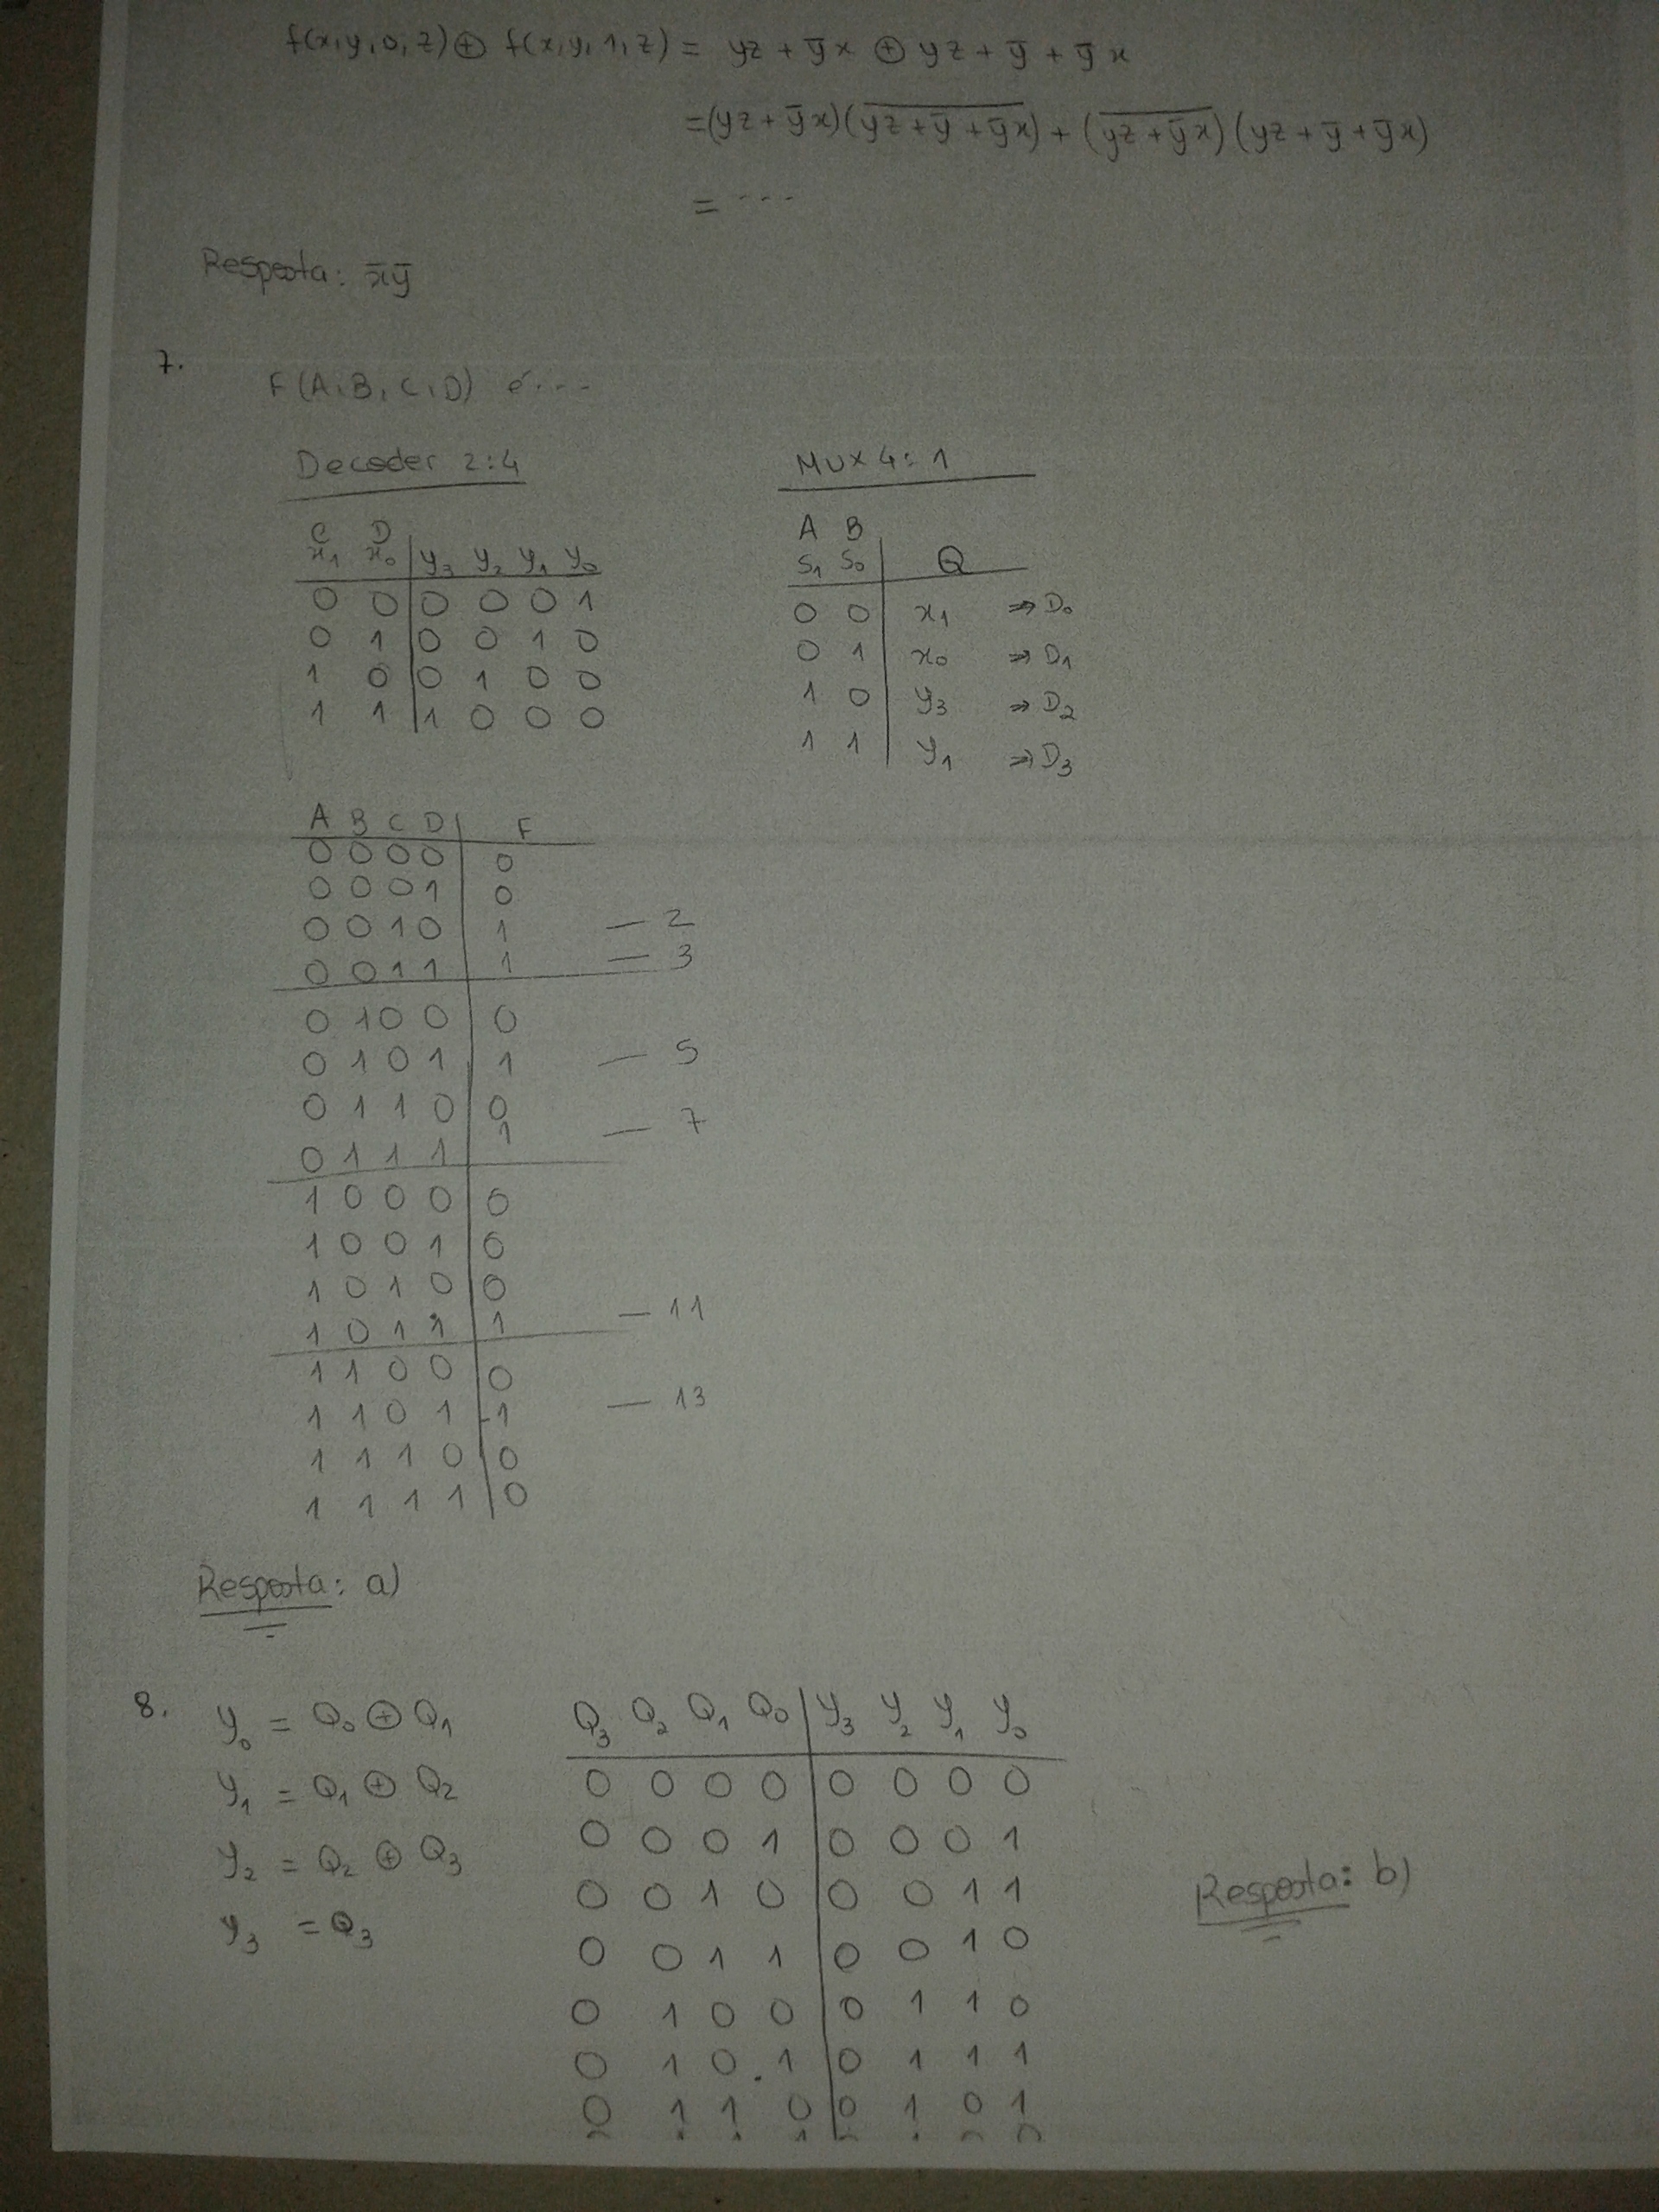 f(x,y,0,z) ⊕ f(x,y,1,z) = yz + ȳx ⊕ yz + ȳ + ȳx
= (yz + ȳx)(\overline{yz + ȳ + ȳx}) + (\overline{yz + ȳx})(yz + ȳ + ȳx)
= ...
Resposta: x̄ȳ
7.
F(A,B,C,D) é...
Decoder 2:4
C D
x₁ x₀ | y₃ y₂ y₁ y₀
0 0 | 0 0 0 1
0 1 | 0 0 1 0
1 0 | 0 1 0 0
1 1 | 1 0 0 0
MUX 4:1
A B
S₁ S₀ | Q
0 0 | x₁ ⇒ D₀
0 1 | x₀ ⇒ D₁
1 0 | y₃ ⇒ D₂
1 1 | y₁ ⇒ D₃
A B C D | F
0 0 0 0 | 0
0 0 0 1 | 0
0 0 1 0 | 1 — 2
0 0 1 1 | 1 — 3
0 1 0 0 | 0
0 1 0 1 | 1 — 5
0 1 1 0 | 0
0 1 1 1 | 1 — 7
1 0 0 0 | 0
1 0 0 1 | 0
1 0 1 0 | 0
1 0 1 1 | 1 — 11
1 1 0 0 | 0
1 1 0 1 | 1 — 13
1 1 1 0 | 0
1 1 1 1 | 0
Resposta: a)
8.
y₀ = Q₀ ⊕ Q₁
y₁ = Q₁ ⊕ Q₂
y₂ = Q₂ ⊕ Q₃
y₃ = Q₃
Q₃ Q₂ Q₁ Q₀ | y₃ y₂ y₁ y₀
0 0 0 0 | 0 0 0 0
0 0 0 1 | 0 0 0 1
0 0 1 0 | 0 0 1 1
0 0 1 1 | 0 0 1 0
0 1 0 0 | 0 1 1 0
0 1 0 1 | 0 1 1 1
0 1 1 0 | 0 1 0 1
Resposta: b)